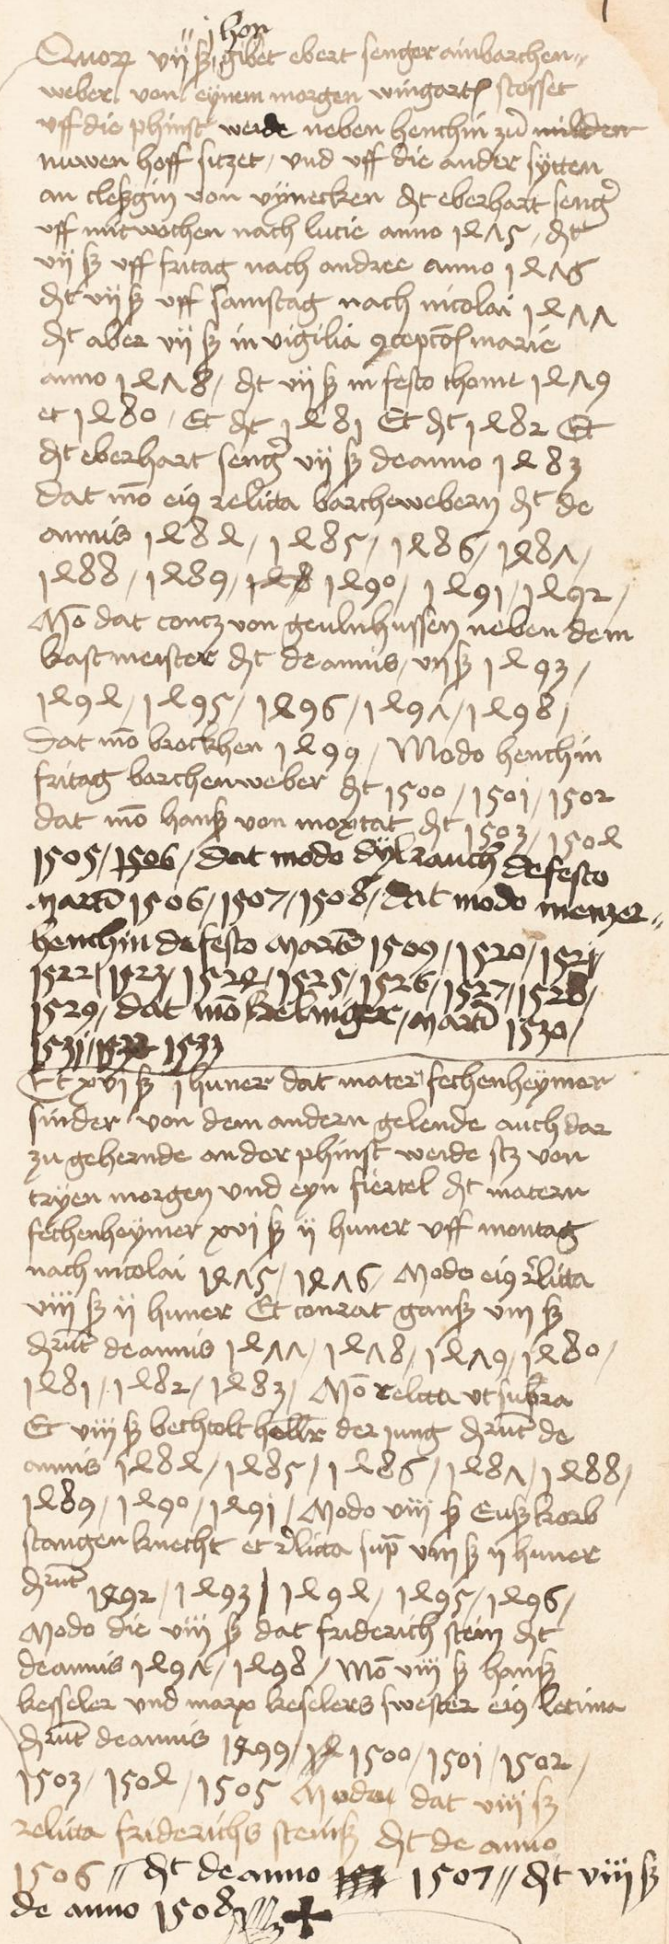 j hon
Quorum vij ß gibet ebert senger ainbarchen„
weber von eynem morgen wingart stosset
uff die phinst weide neben henchin zu
nuwen hoff sitzet, und uff die ander sytten
an cleßgin von vynecken dt eberhart seng
uff mitwochen nach lucie anno 1475, dt
vij ß uff fritag nach andree anno 1476
dt vij ß uff samstag nach nicolai 1477
dt aber vij ß in vigilia concepcois marie
anno 1478, dt vij ß in festo thome 1479
et 1480, Et dt 1481 Et dt 1482 Et
dt eberhart seng vij ß de anno 1483
dat mo eius relicta barchewebern dt de
annis 1484, 1485, 1486, 1487,
1488, 1489, 1490, 1491, 1492,
Mo dat contz von geilnhussen neben dem
bastmeister dt de annis, vij ß 1493,
1494, 1495, 1496, 1497, 1498,
dat mo brockhen 1499, Modo henchin
fritag barchenweber dt 1500, 1501, 1502
dat mo hanß von moxtat dt 1503, 1504
1505, 1506, dat modo dylrauch de festo
martini 1506, 1507, 1508, dat modo menzer„
henchin de festo martini 1509, 1520, 1521,
1522, 1523, 1524, 1525, 1526, 1527, 1528,
1529, dat mo kelinger, martini 1530,
1531, 1532 1533
Et xvi ß j huner dat mater fechenheymer
sinder von dem andern gelende auch dar
zu gehernde an der phinst weide stz von
tryen morgen und eyn fiertel dt matern
fechenheymer xvi ß ij huner uff montag
nach nicolai 1475, 1476, Modo eius rlicta
viij ß ij huner Et conrat ganß viij ß
drunt de annis 1477, 1478, 1479, 1480,
1481, 1482, 1483, Mo relicta ut supra
Et viij ß bechtolt hellr der jung drunt de
annis 1484, 1485, 1486, 1487, 1488,
1489, 1490, 1491, Modo viij ß korb
stangen knecht et rlicta sup viij ß ij huner
drunt 1492, 1493, 1494, 1495, 1496,
Modo die viij ß dat friderich stein dt
de annis 1497, 1498, Mo viij ß hanß
kesseler und marx keselers swester eius
drunt de annis 1499, 1500, 1501, 1502,
1503, 1504, 1505 Modo dat viij ß
relicta friderichs steinß dt de anno
1506 „ dt de anno 1507 „ dt viij ß
de anno 1508